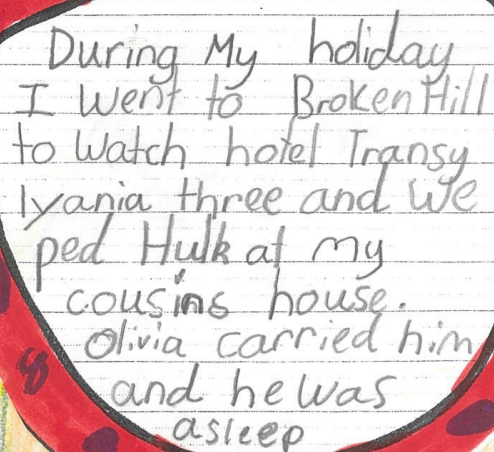 During My holiday
I Went to Broken Hill
to Watch hotel Transy
lvania three and We
ped Hulk at my
cousins house.
Olivia carried him
and he was
asleep